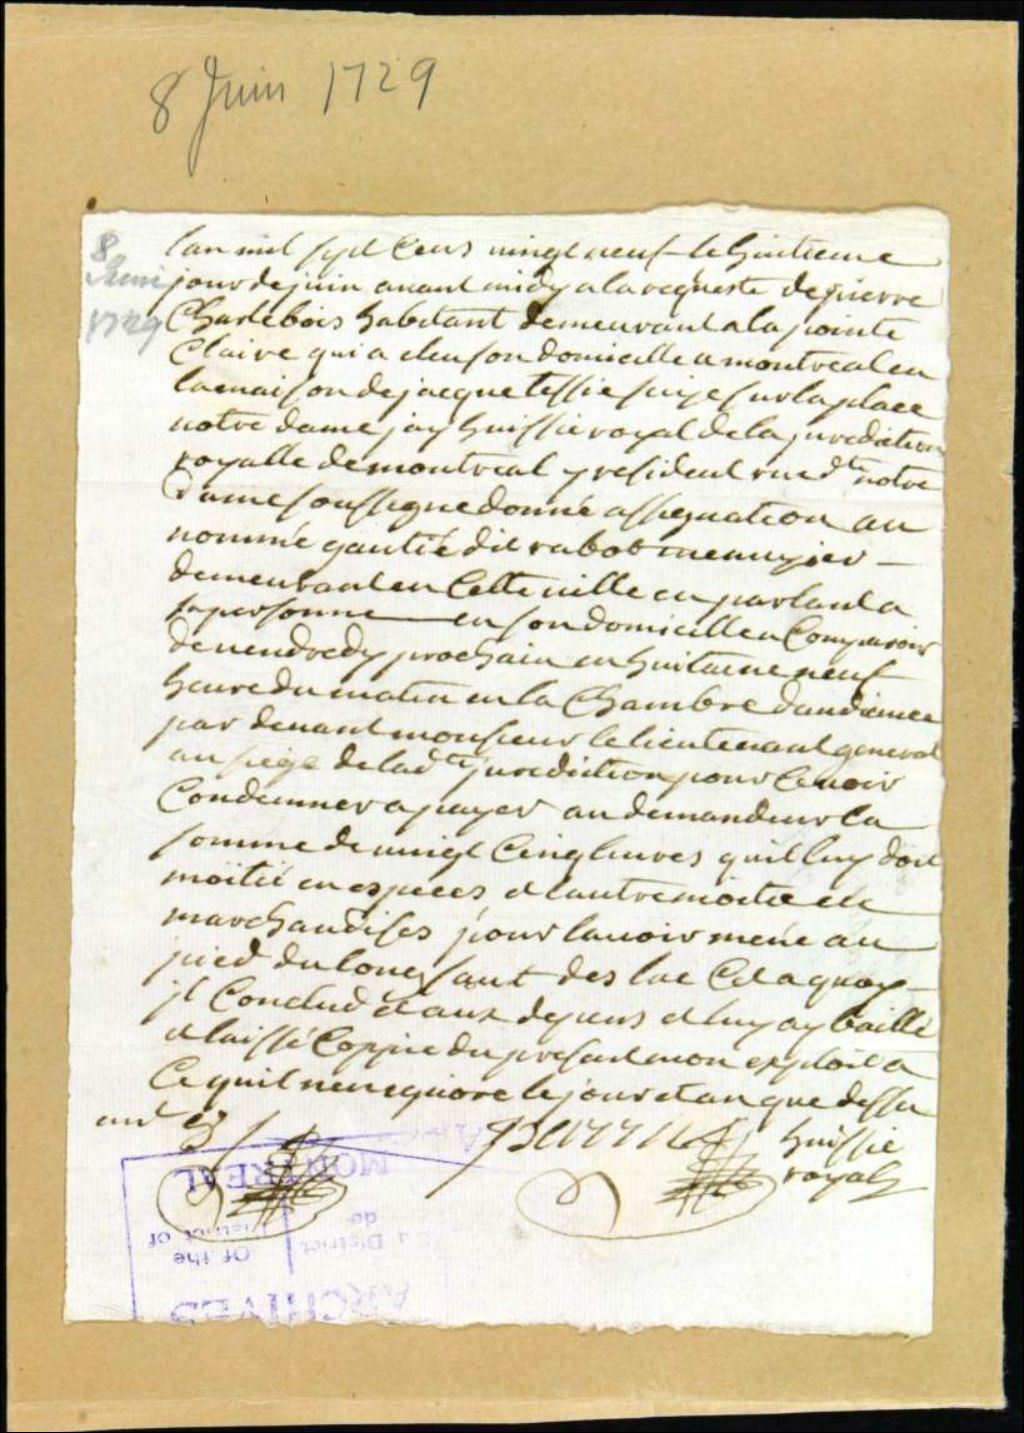 8 Juin 1729
8
Juin
1729
lan mil sept Cens vingt neuf le huitieme
jour de juin avant midy a la requeste de pierre
Charlebois habitant demeurant a la pointe
Claire qui a eleu son domicille a montreal en
la maison de jacque tessie size sur la place
notre dame jay huissie royal de la jurediction
royalle de montreal y resident rue dte notre
dame soussigne donné assignation au
nommé gautié dit rabot menuzier
demeurant en Cette ville en parlant a
sa personne en son domicille a Comparoir
de vendredy prochain en huitaine neuf
heure du matin en la Chambre daudience
par devant monsieur le lieutenant general
au siege de lad te jurediction pour ce voir
Condemner a payer au demandeur la
somme de vingt Cinq livres quil luy doit
moitié en especes et lautre moitie en
marchandises pour lavoir mené au
pied du long saut des lac Et a quoy
jl Conclud et aux depens et luy ay baillé
et laissé Coppie du present mon exploit a
Ce quil nen eignore le jour et an que dessu
huissie
royal
MONTREAL
District of
Of the
du District
de
ARCHIVES